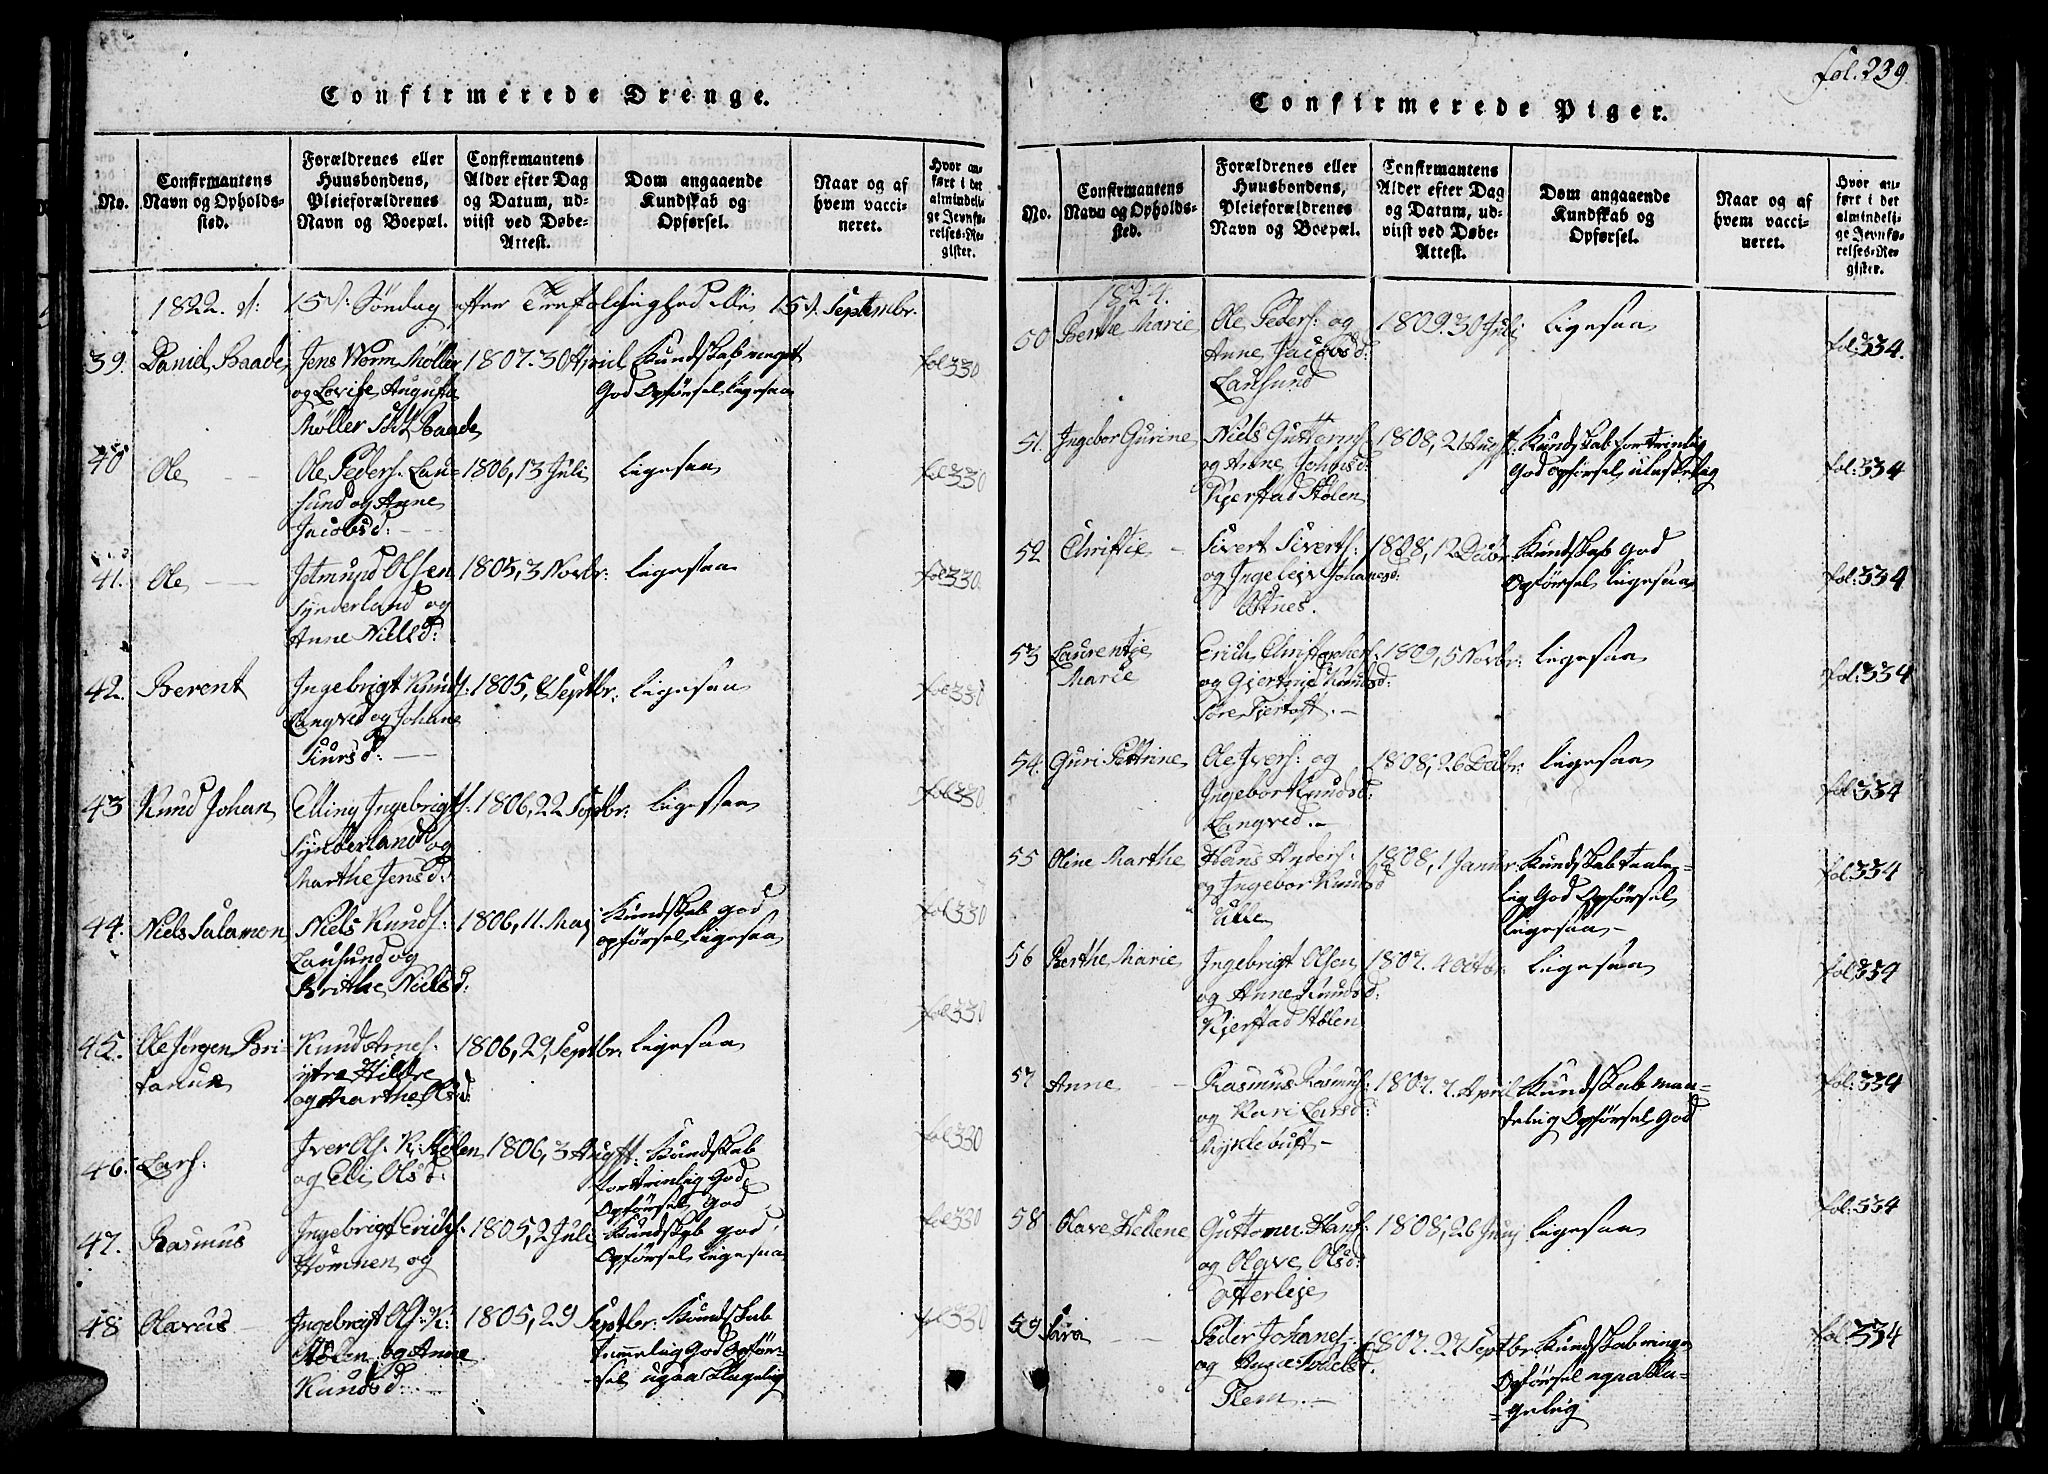 fol. 239
Confirmerede Drenge.
No.
Confirmantens
Navn og Opholds-
sted.
Forældrenes eller
Huusbondens,
Pleieforældrenes
Navn og Boepæl.
Confirmantens
Alder efter Dag
og Datum, ud-
viist ved Døbe-
Attest.
Dom angaaende
Kundskab og
Opførsel.
Naar og af
hvem vacci-
neret.
Hvor an-
ført i det
almindeli-
ge Jevnfø-
relses-Re-
gister.
1822. d: 15d: Søndag efter Trefoldighed den 15d. Septembr.
39. Daniel Baade
Jens Worm Møller
og Lovise Augusta
Møller født Baade
1807. 30 April
Kundskab meget
God Opførsel ligesaa
fol 330
40 Ole
Ole Peders: Lau-
sund og Anne
Jacobsd:
1806, 13 Juli
ligesaa
fol 330
41. Ole
Jetmund Olsen
Synderland og
Anne Nielsd:
1805, 3 Novbr:
ligesaa
fol 330.
42. Berent
Ingebrigt Knuds:
Langved og Johane
Siursd:
1805, 8 Septbr:
ligesaa
fol 330
43 Knud Johan
Elling Ingebrigts:
Synderland og
Marthe Jensd:
1806, 22 Septbr:
ligesaa
fol 330
44. Niels Salamon
Niels Knuds:
Lausund og
Brithe Nielsd:
1806, 11. Maj
Kundskab god
opførsel ligesaa
fol 330
45. Ole Jørgen Bri-
tanus
Knud Arnes:
ytre Hildre
og Marthe Olsd:
1806, 29 Septbr:
ligesaa
fol 330
46. Lars:
Iver Ols: K: Stølen
og Eli Olsd:
1806, 3 Augst:
Kundskab
fortrinlig God
Opførsel God
fol 330
47. Rasmus
Ingebrigt Erichs:
Homnen og
1805, 2 Juli
Kundskab god
Opførsel ligesaa
fol 330
48 Olavus
Ingebrigt Ols: K:
Stølen og Anne
Knudsd:
1805, 29 Septbr:
Kundskab
temmelig God Opfør-
sel upaaklagelig
fol 330
Confirmerede Piger.
No.
Confirmantens
Navn og Opholds-
sted.
Forældrenes eller
Huusbondens,
Pleieforældrenes
Navn og Boepæl.
Confirmantens
Alder efter Dag
og Datum, ud-
viist ved Døbe-
Attest.
Dom angaaende
Kundskab og
Opførsel.
Naar og af
hvem vacci-
neret.
Hvor an-
ført i det
almindeli-
ge Jevnfø-
relses-Re-
gister.
1824.
50 Berthe Marie
Ole Peders: og
Anne Jacobsd:
Lausund
1809. 30 Juli
ligesaa
fol: 334.
51. Ingebor Gurine
Niels Guttorms:
og Anne Johnsd:
Kjerstad Stølen
1808, 21 Augst.
Kundskab fortrinlig
God opførsel
fol: 334
52 Christie
Sivert Siverts:
og Ingeleiv Johansd:
Østnes.
1808, 12 Decbr:
Kundskab God
Opførsel ligesaa
fol: 334
53 Laurentje
Marie
Erich Christophers:
og Gjertrud Knudsd:
Søre Fjertoft.
1809, 5 Novbr:
ligesaa
fol: 334
54. Guri Pettrine
Ole Ivers: og
Ingebor Knudsd:
Langved.
1808, 26 Decbr:
ligesaa
fol 334
55 Oline Marthe
Hans Anders:
og Ingebor Knudsd
Ulle
1808, 1 Januar
Kundskab taale-
lig God Opførsel
ligesaa
fol 334
56 Berthe Marie
Ingebrigt Olsen
og Anne Knudsd:
Kjerstad Stølen
1807. 4 Octbr:
ligesaa
fol: 334
57 Anne
Rasmus Rasmus:
og Kari Larsd:
Myklebust
1807. 7. April
Kundskab maa-
delig Opførsel God
fol: 334
58 Olave Hellene
Guttorm Hans:
og Olave Olsd:
Otterleje
1808, 26 Junj
ligesaa
fol: 334
59 Sara
Peder Johans:
og
Flem.
1807. 27 Septbr:
Kundskab ringe
Opførsel upaakla-
gelig
fol: 334